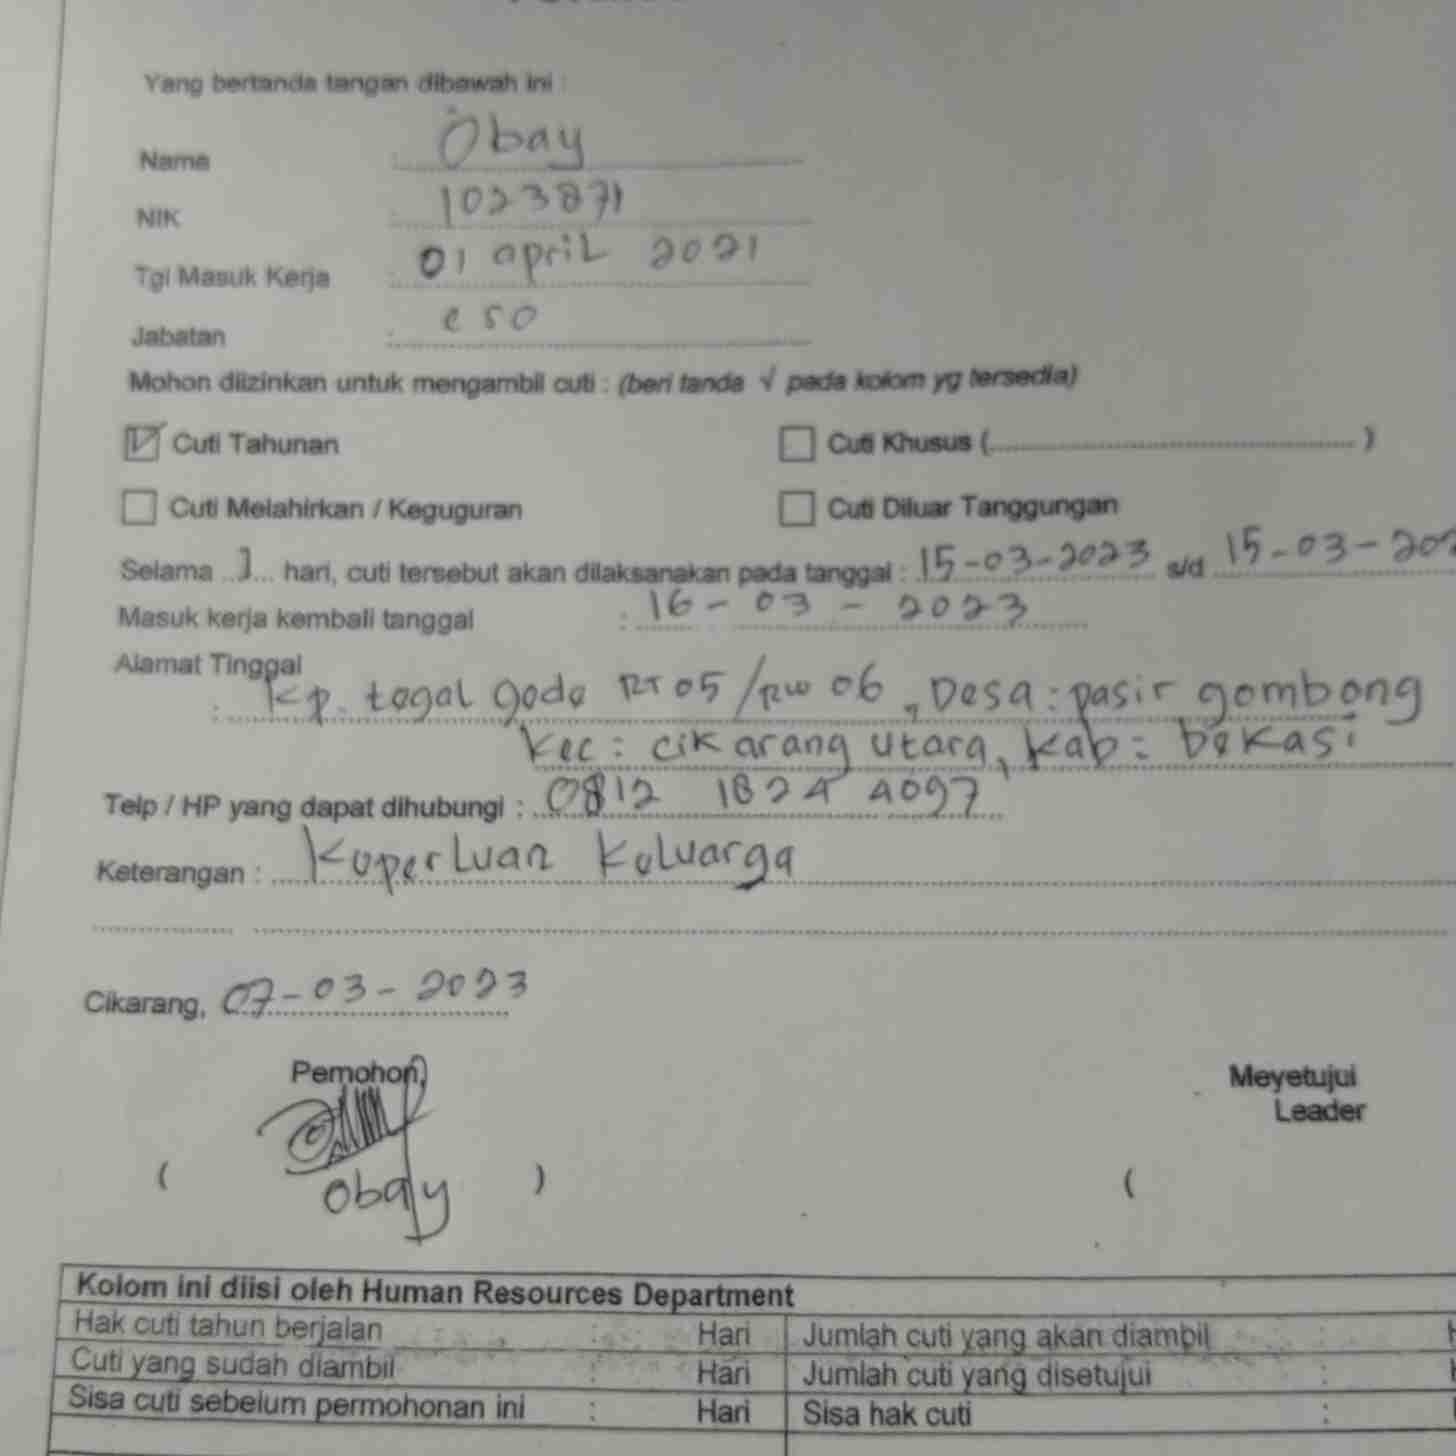 Yang bertanda tangan dibawah ini :
Nama : Obay
NIK : 1023871
Tgl Masuk Kerja : 01 april 2021
Jabatan : eso
Mohon diizinkan untuk mengambil cuti : (beri tanda √ pada kolom yg tersedia)
Cuti Tahunan Cuti Khusus ( )
Cuti Melahirkan / Keguguran Cuti Diluar Tanggungan
Selama 1 hari, cuti tersebut akan dilaksanakan pada tanggal : 15-03-2023 s/d 15-03-202
Masuk kerja kembali tanggal : 16-03-2023
Alamat Tinggal
: kp. tegal gede RT 05/RW 06, Desa: pasir gombong
kec: cikarang utara, kab: bekasi
Telp / HP yang dapat dihubungi : 0812 1824 4097
Keterangan : keperluan keluarga
Cikarang, 07-03-2023
Pemohon, Meyetujui
Leader
( obay ) (
Kolom ini diisi oleh Human Resources Department
Hak cuti tahun berjalan : Hari Jumlah cuti yang akan diambil :
Cuti yang sudah diambil : Hari Jumlah cuti yang disetujui :
Sisa cuti sebelum permohonan ini : Hari Sisa hak cuti :